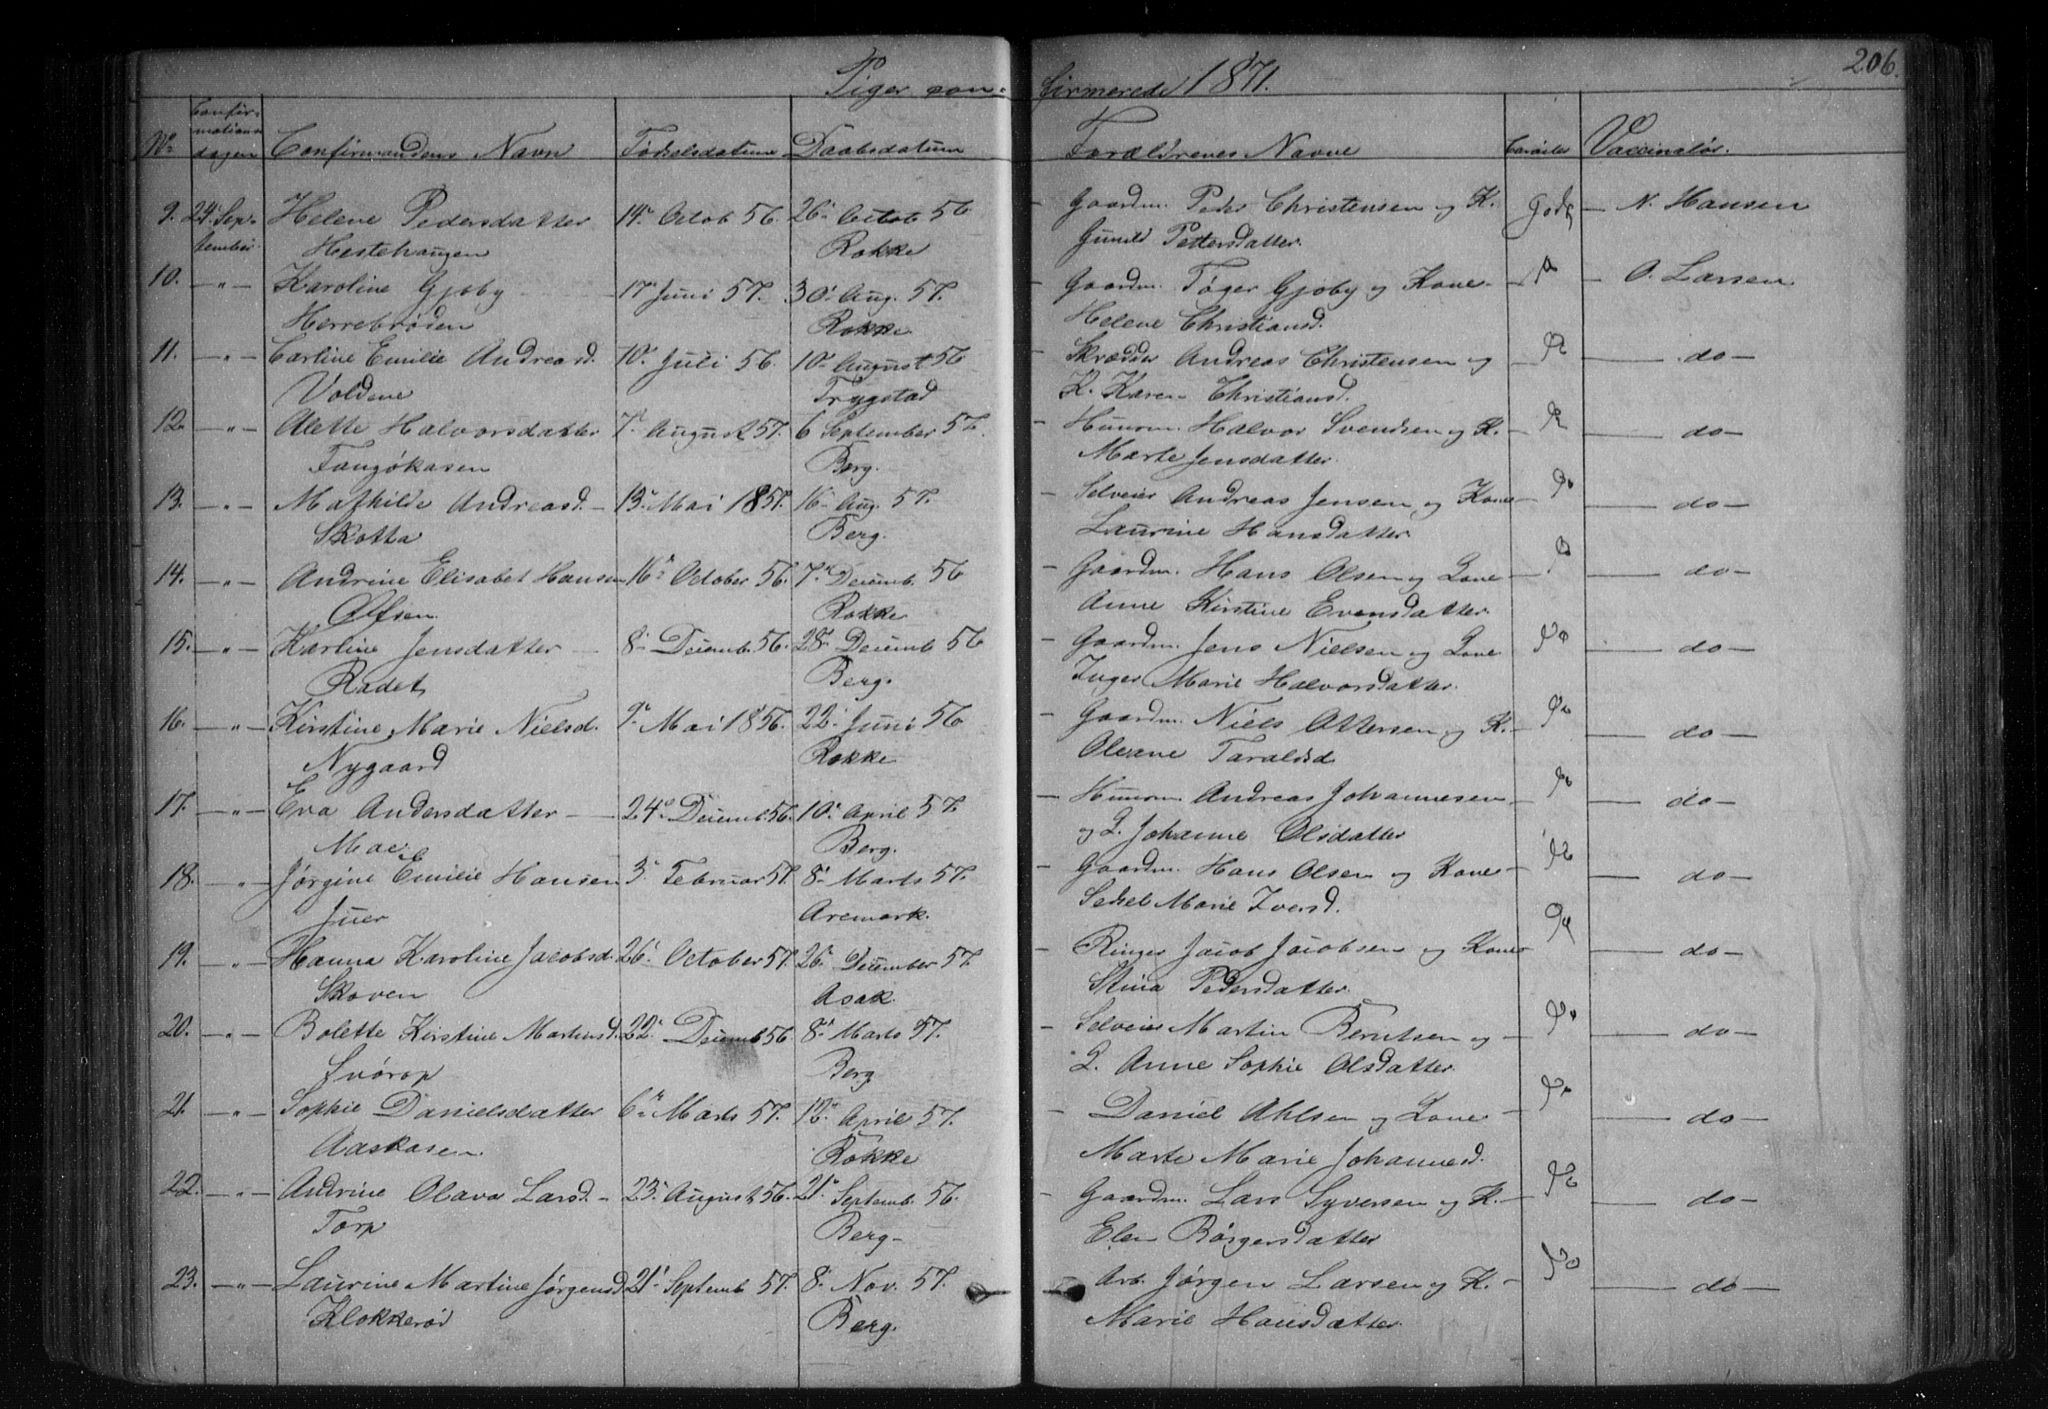 206.
Piger con- firmerede 1871.
No Confirmationsdagen Confirmandens Navn Fødselsdatum Daabsdatum Forældrenes Navne Vaccinatør.
9. 24. Sep- Helene Pedersdatter 14. Octob 56. 26. Octob 56 - Gaardm. Peder Christensen og K. God - N. Hansen
tember Hestehaugen Rokke Pettersdatter.
10. -"- Karoline Gjøby 17. Juni 57. 30. Aug. 57. - Gaardm. Tøger Gjøby og Kone - - O. Larsen
Herrebrøden Rokke Helene Christiansd.
11. -"- Carline Emilie Andreasd. 10. Juli 56. 10. August 56 - Skrædder Andreas Christensen og - do -
Voldene Trygstad K. Karen Christiansd.
12. -"- Alette Halvorsdatter 7. August 57. 6 September 57. - Huusm. Halvor Svendsen og K. - do -
Berg. Marte Jensdatter.
13. -"- Mathilde Andreasd. - 13. Mai 1857. 16 Aug. 57. - Selveier Andreas Jensen og Kone - do -
Skotta Berg. Laurine Hansdatter.
14. -"- Andrine Elisabet Hansen 16. October 56. 7. Decemb. 56 - Gaardm. Hans Olsen og Kone - do -
Rokke Anne Kirstine Evensdatter.
15. -"- Karline Jensdatter 8. Decemb. 56. 28. Decemb 56 - Gaardm. Jens Nielsen og Kone - do -
Rødet Berg. Inger Marie Halvorsdatter.
16. -"- Kirstine Marie Nielsd. 9. Mai 1856. 22. Juni 56 - Gaardm. Niels Ottersen og K. - do -
Nygaard Rokke Oleane Taralsd
17. -"- Eva Andersdatter - 24. Decemb 56. 10. April 57. - Huusm. Andreas Johannesen - do -
Berg. og K. Johanne Olsdatter
18. -"- Jørgine Emilie Hansen 3. Februar 57. 8. Marts 57. - Gaardm. Hans Olsen og Kone - do -
Juer Aremark. Sedsel Marie Iversd.
19. -"- Hanna Karoline Jacobsd. 26. October 57. 26. December 57. - Ringer Jacob Jacobsen og Kone - do -
Skoven Asak. Stina Pedersdatter.
20. -"- Bolette Kirstine Martinsd. 22. Decemb 56. 8. Marts 57. - Selveier Martin Berntsen og - do -
Berg K. Anne Sophie Olsdatter.
21. -"- Sophie Danielsdatter 6. Marts 57. 12. April 57. - Daniel Ahlsen og Kone - do -
Aaskasen Rokke Marte Marie Johannesd.
22. -"- Andrine Olava Larsd. - 23. August 56. 21. Septemb. 56. - Gaardm. Lars Syversen og K. - do -
Torp Berg - Elen Børgersdatter
23. -"- Laurine Martine Jørgensd 21. Septemb 57. 8. Nov. 57. - Arb. Jørgen Larsen og K. - do -
Klokkerød Berg. Marie Hansdatter.